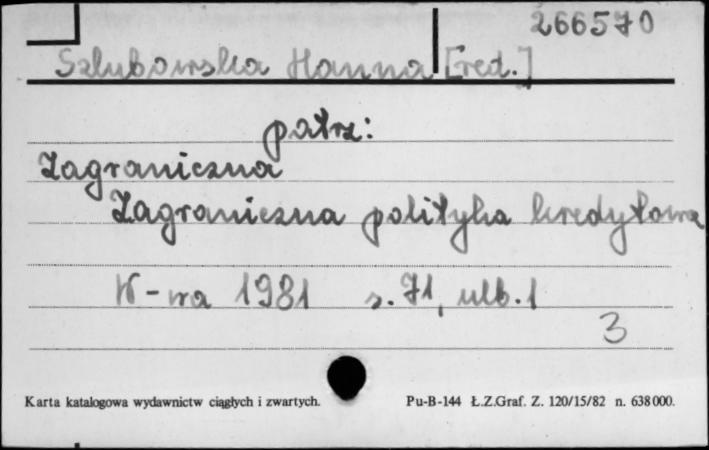 266570
Szlubowska Hanna [red.]
patrz:
Zagraniczna
Zagraniczna polityka kredytowa
W-wa 1981 s. 71, ulb. 1
3
Karta katalogowa wydawnictw ciągłych i zwartych. Pu-B-144 Ł.Z.Graf. Z. 120/15/82 n. 638000.